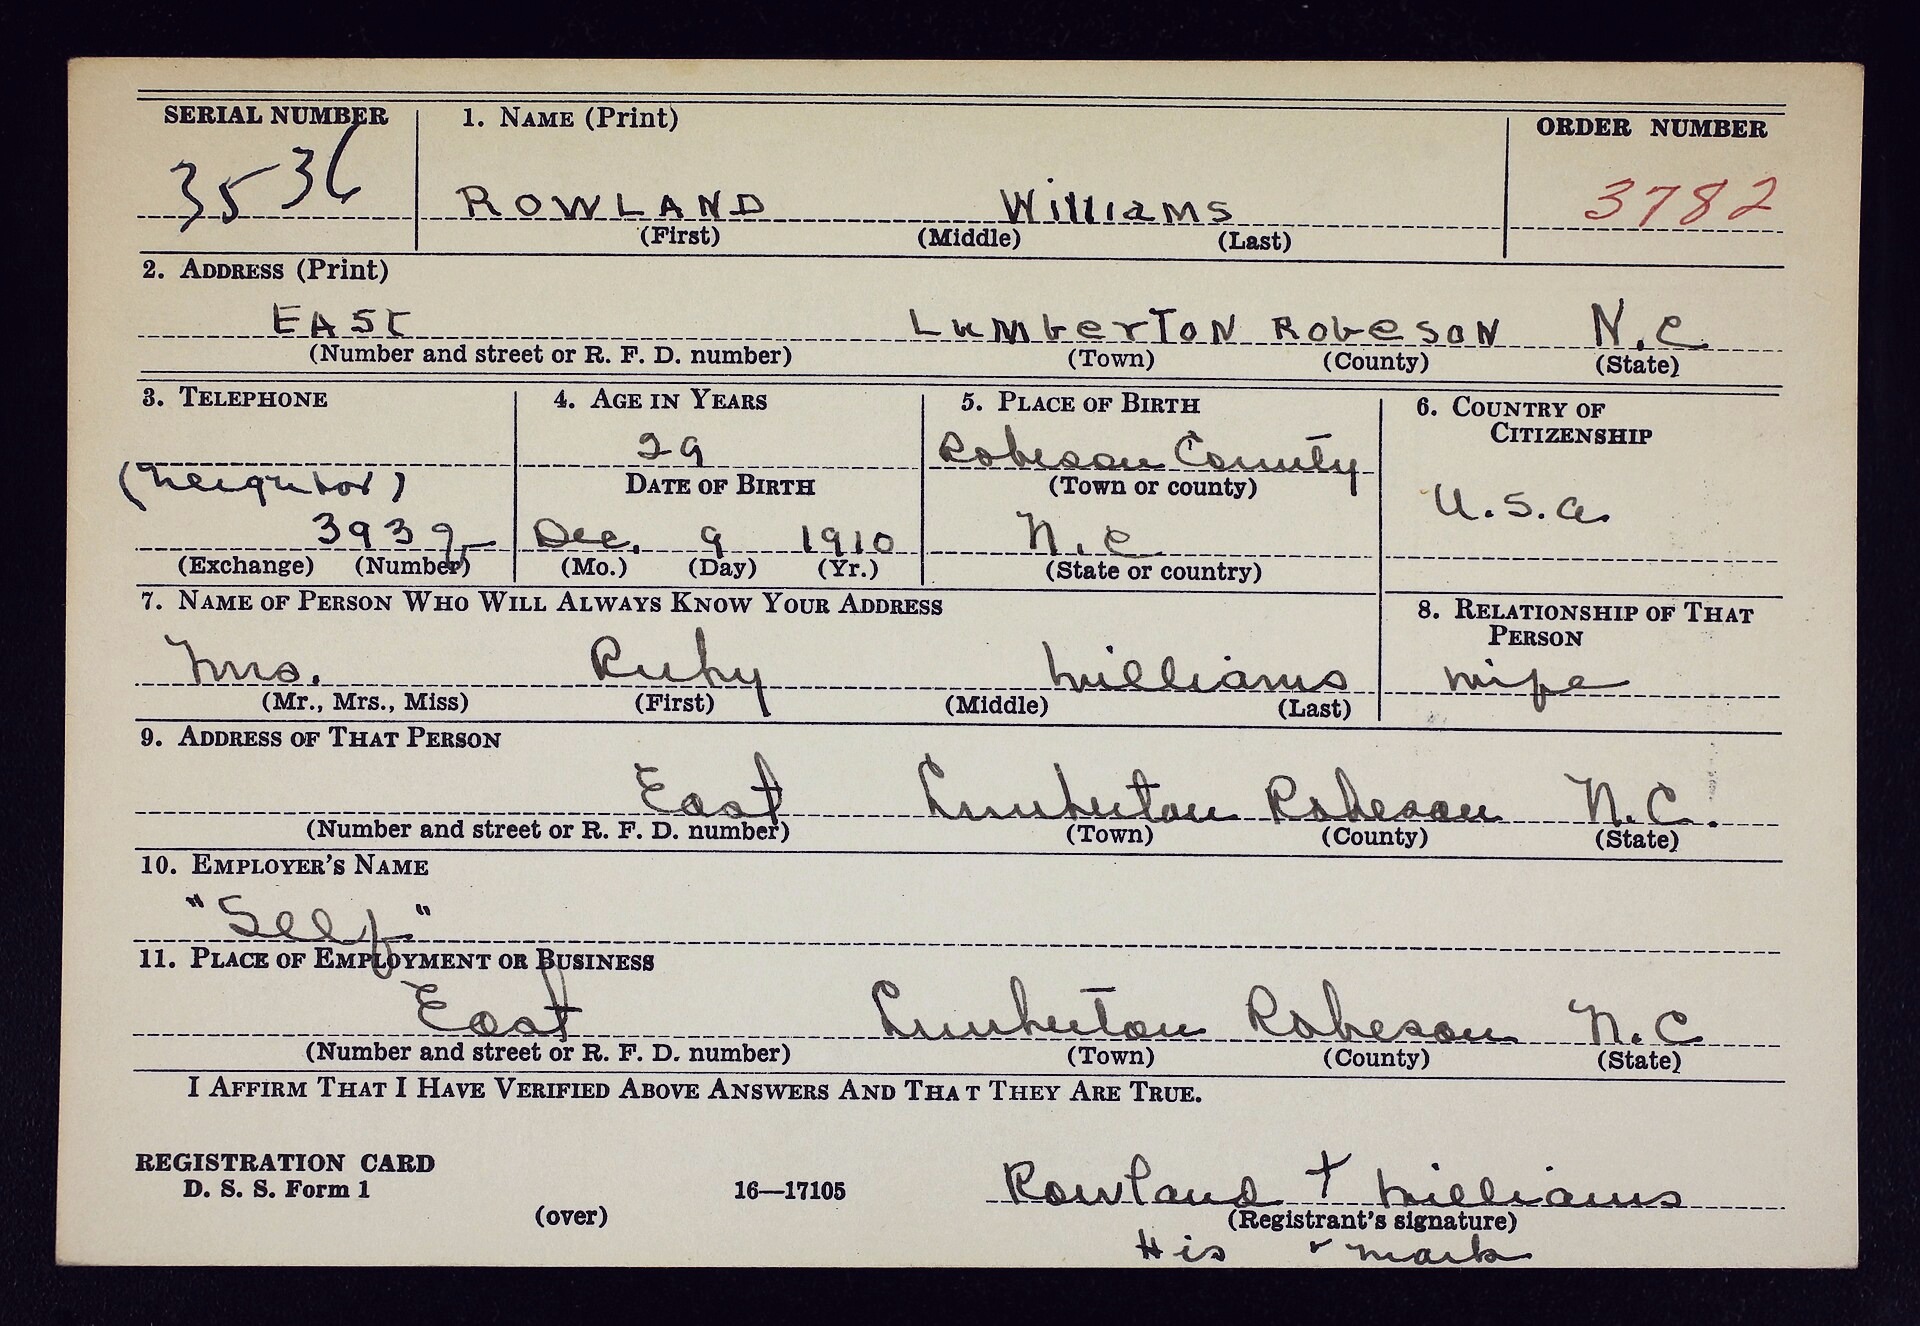 SERIAL NUMBER 1. NAME (Print) ORDER NUMBER
3536 ROWLAND Williams 3782
(First) (Middle) (Last)
2. ADDRESS (Print)
EAST LumberTON Robeson N.C.
(Number and street or R. F. D. number) (Town) (County) (State)
3. TELEPHONE 4. AGE IN YEARS 5. PLACE OF BIRTH 6. COUNTRY OF CITIZENSHIP
29 Robeson County
(neighbor) DATE OF BIRTH (Town or county) U.S.a.
Dec. 9 1910 N.C.
(Exchange) (Number) (Mo.) (Day) (Yr.) (State or country)
7. NAME OF PERSON WHO WILL ALWAYS KNOW YOUR ADDRESS 8. RELATIONSHIP OF THAT PERSON
Mrs. Ruby Williams wife
(Mr., Mrs., Miss) (First) (Middle) (Last)
9. ADDRESS OF THAT PERSON
East Lumberton Robeson N.C.
(Number and street or R. F. D. number) (Town) (County) (State)
10. EMPLOYER'S NAME
"Self"
11. PLACE OF EMPLOYMENT OR BUSINESS
East Lumberton Robeson N.C
(Number and street or R. F. D. number) (Town) (County) (State)
I AFFIRM THAT I HAVE VERIFIED ABOVE ANSWERS AND THAT THEY ARE TRUE.
REGISTRATION CARD
D. S. S. Form 1 16—17105 Rowland + Williams
(over) (Registrant's signature)
His mark